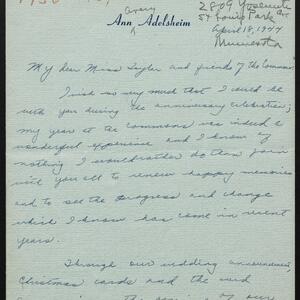 Avery
Ann Adelsheim
2809 Yosemite Av.
St Louis Park
April 18, 1944
Minnesota
My dear Miss Taylor and friends of the Commons:
I wish so very much that I could be
with you during the anniversary celebration;
my year at the Commons was indeed a
wonderful experience and I know of
nothing I would rather do than join
with you all to renew happy memories
and to see the progress and change
which I know has come in recent
years.
Through our wedding announcement,
Christmas cards and the